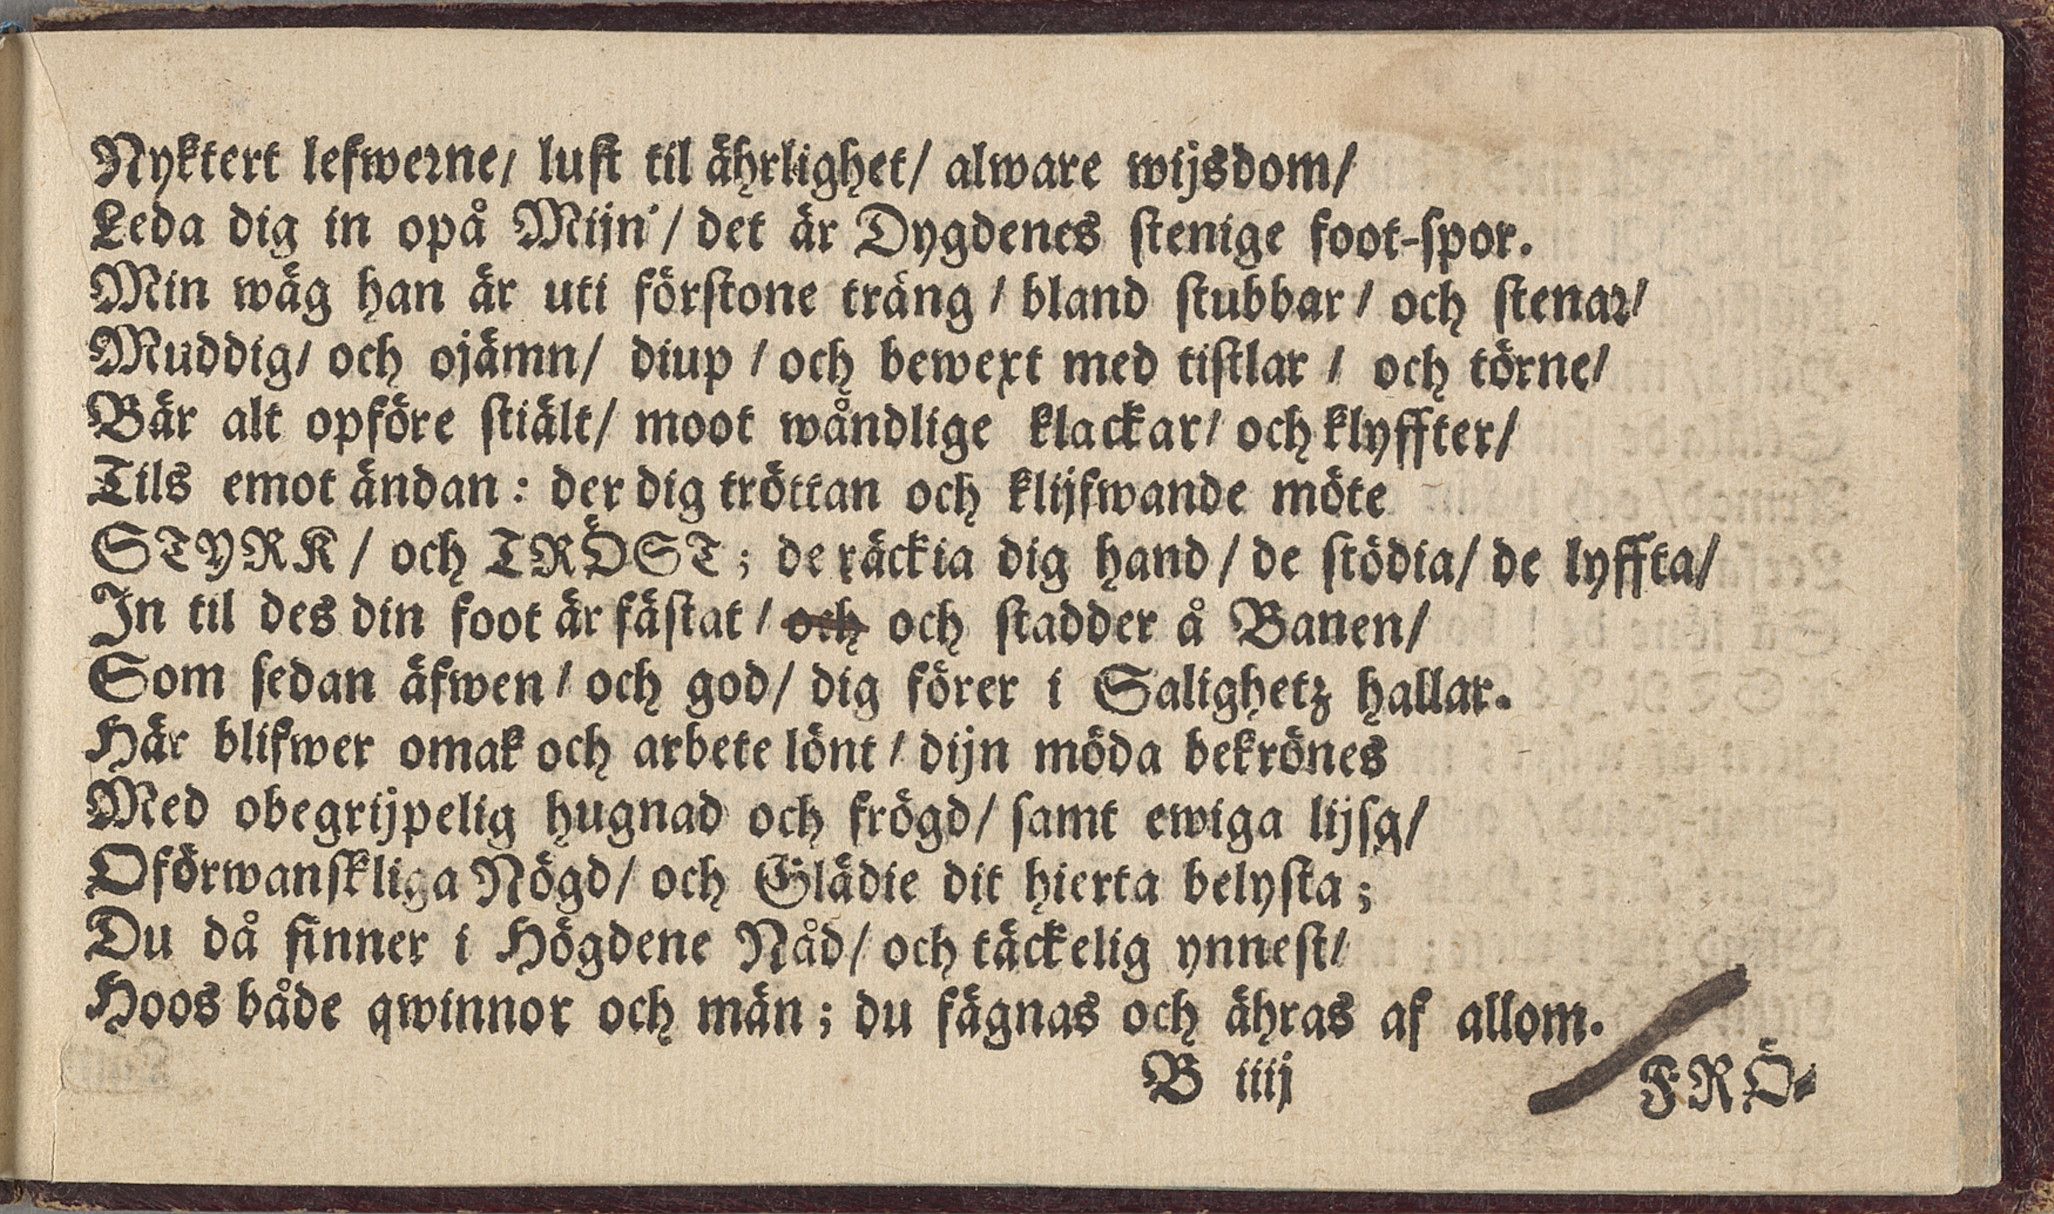 Nyktert lefwerne/ lust til ährlighet/ alware wijsdom/
Leda dig in opå Mijn'/ det är Dygdenes stenige foot-spor.
Min wäg han är uti förstone träng / bland stubbar / och stenar/
Muddig/ och ojämn/ diup / och bewext med tistlar / och törne/
Bär alt opföre stiält/ moot wåndlige klackar/ och klyffter/
Tils emot ändan: der dig tröttan och klijfwande möte
STYRK / och TRÖST; de räckia dig hand / de stödia/ de lyffta/
In til des din foot är fästat / och och stadder å Banen/
Som sedan äfwen / och god/ dig förer i Salighetz hallar.
Här blifwer omak och arbete lönt / dijn möda bekrönes
Med obegrijpelig hugnad och frögd/ samt ewiga lijsa/
Oförwanskliga Nögd/ och Glädie dit hierta belysta;
Du då finner i Högdene Nåd/ och täckelig ynnest/
Hoos både qwinnor och män; du fägnas och ähras af allom.
B iiij FRÖ-